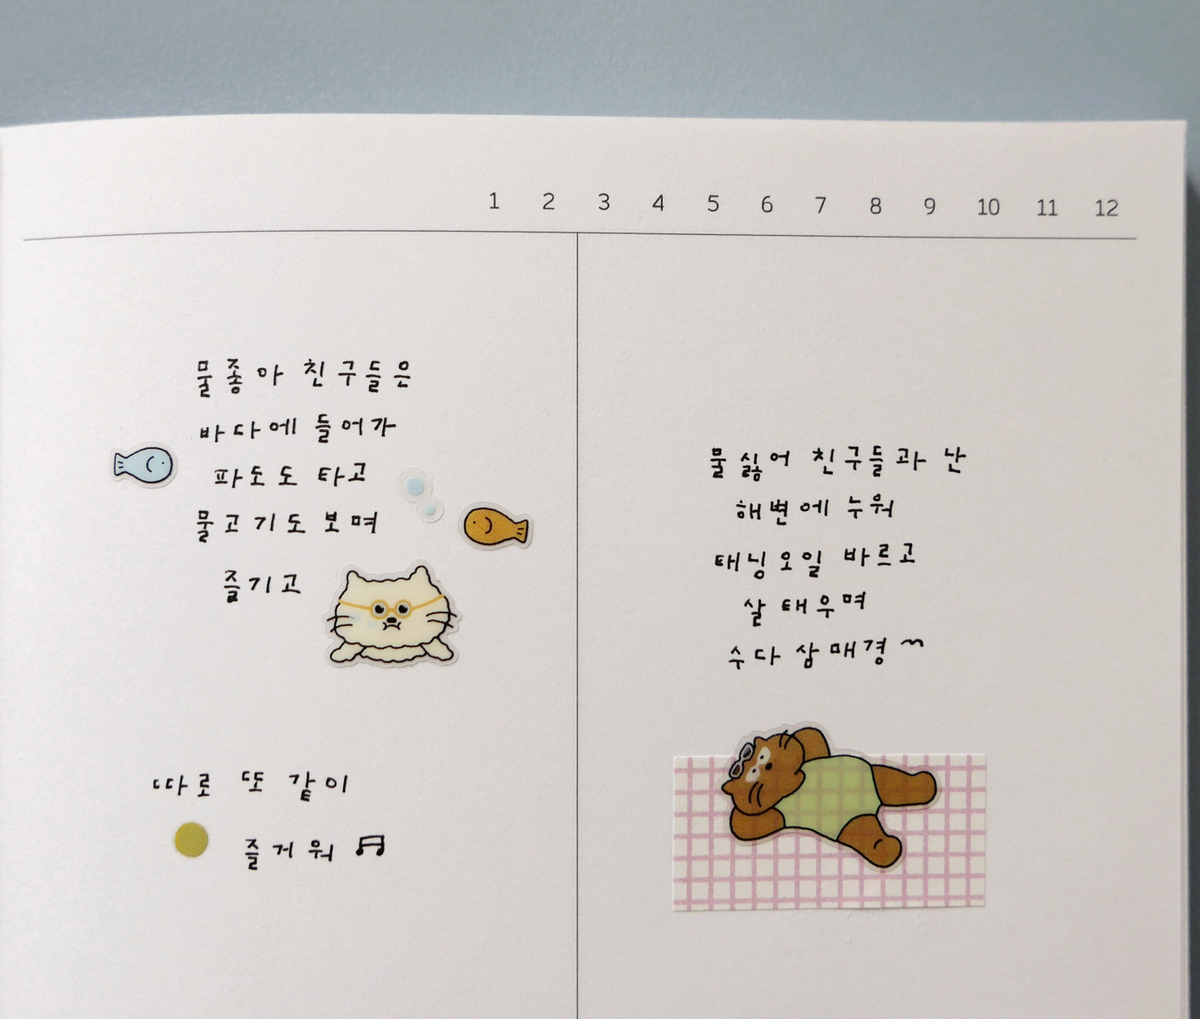 1 2 3 4 5 6 7 8 9 10 11 12
물좋아 친구들은
바다에 들어가
파도도 타고
물고기도 보며
즐기고
따로 또 같이
즐거워 ♫
물싫어 친구들과 난
해변에 누워
태닝오일 바르고
살 태우며
수다 삼매경 ~